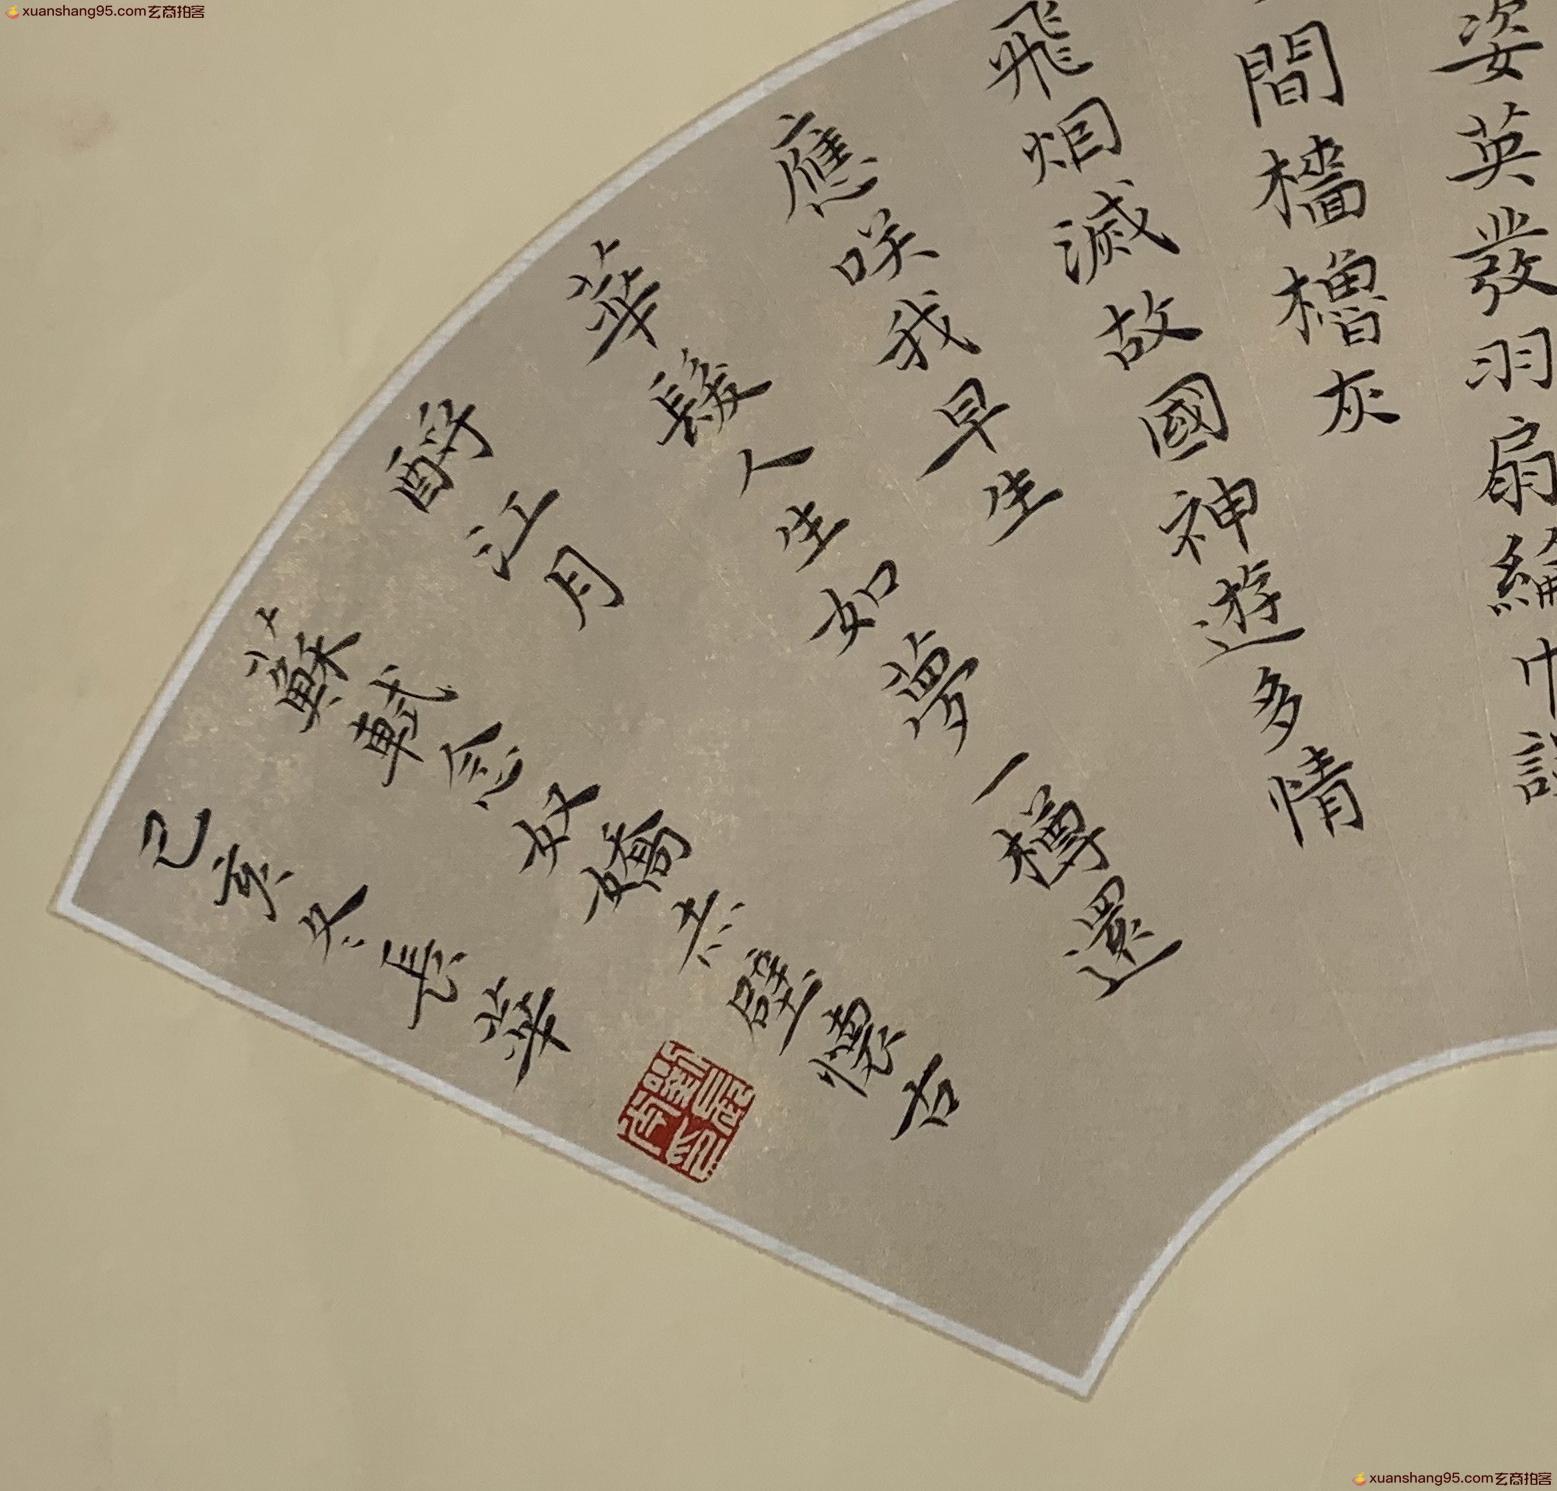 xuanshang95.com玄商拍客
姿英發羽扇綸巾談
間檣櫓灰
飛烟滅故國神遊多情
應咲我早生
華髮人生如夢一樽還
酹江月
蘇軾念奴嬌赤壁懷古
己亥冬長華
xuanshang95.com玄商拍客